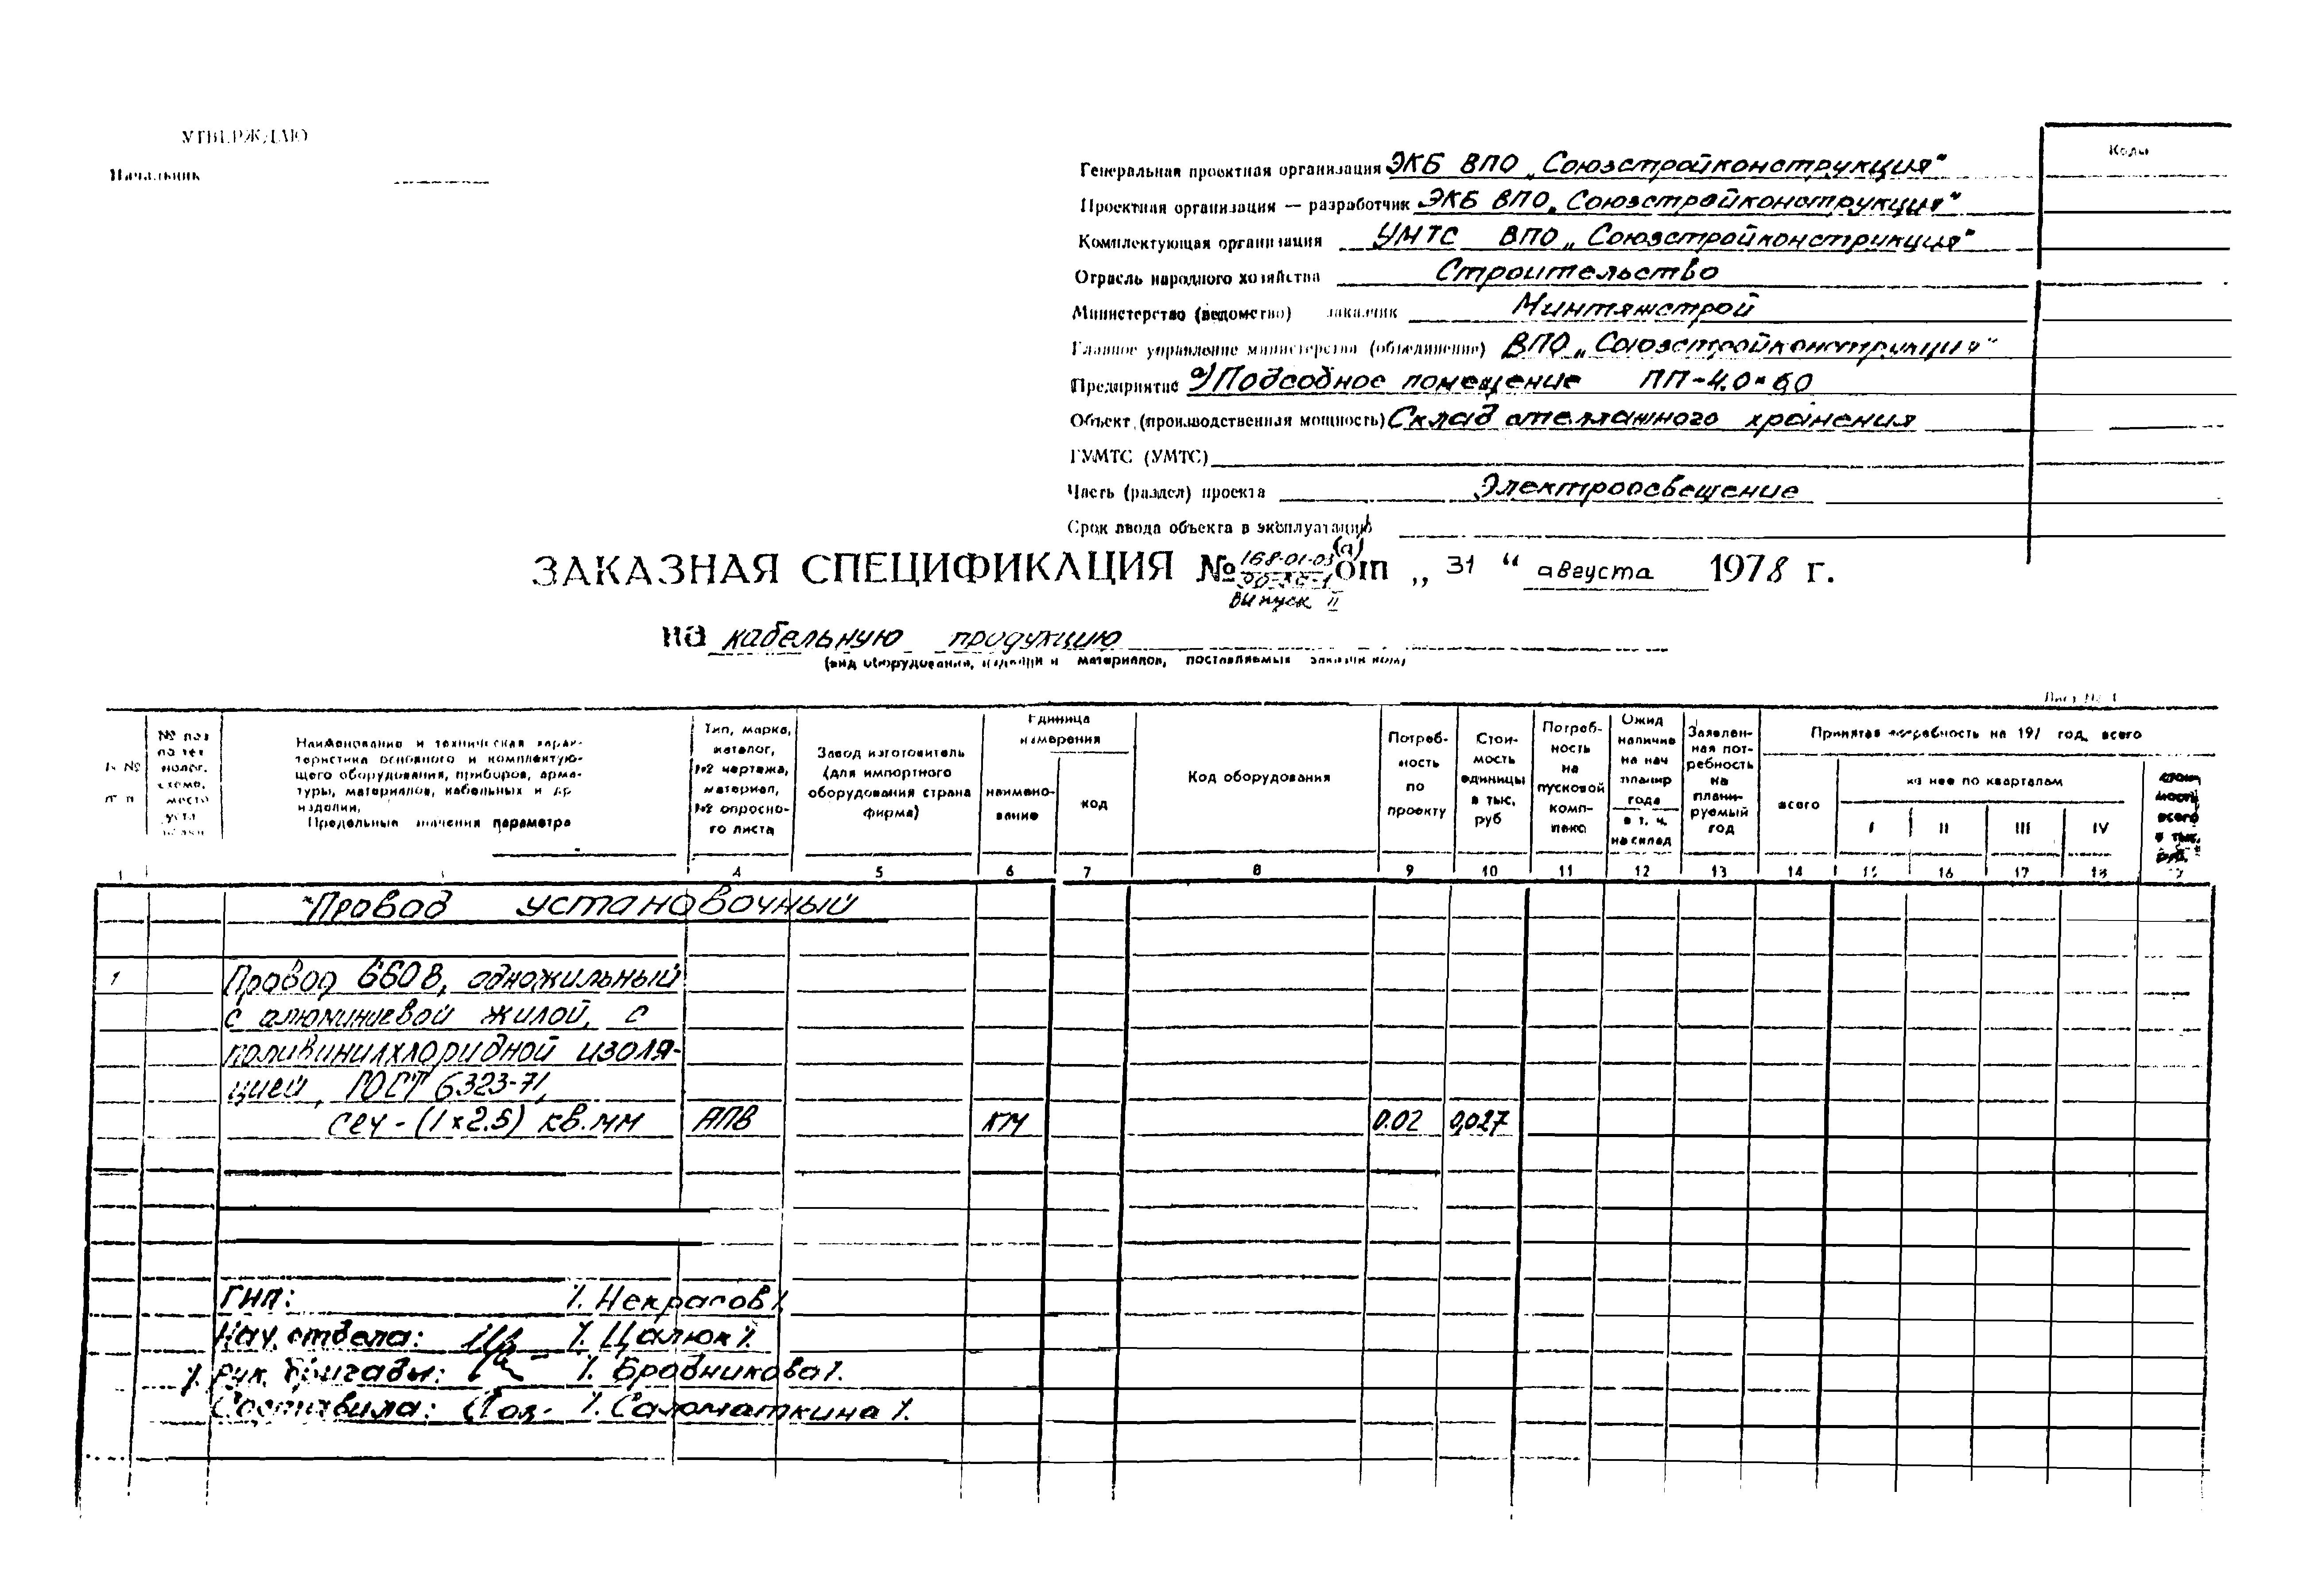 УТВЕРЖДАЮ
Начальник
Коды
Генеральная проектная организация ЭКБ ВПО „Союзстройконструкция"
Проектная организация — разработчик ЭКБ ВПО „Союзстройконструкция"
Комплектующая организация УМТС ВПО „Союзстройконстрикция"
Отрасль народного хозяйства Строительство
Министерство (ведомство) заказчик Минтяжстрой
Главное управление министерства (объединение) ВПО „Союзстройконструкция"
Предприятие а) Подсобное помещение ПП-4.0×6.0
Объект (производственная мощность) Склад стеллажного хранения
ГУМТС (УМТС)
Часть (раздел) проекта Электроосвещение
Срок ввода объекта в эксплуатацию
ЗАКАЗНАЯ СПЕЦИФИКАЦИЯ № 168-01-03 (а) от „ 31 " августа 1978 г.
Выпуск II
на кабельную продукцию
(вид оборудования, изделий и материалов, поставляемых заказчиком)
Лист № 1
№ № п п
№ поз по тех нолог. схеме, место уста новки
Наименование и техническая харак- теристика основного и комплектую- щего оборудования, приборов, арма- туры, материалов, кабельных и др изделий. Предельные значения параметра
Тип, марка, каталог, № чертежа, материал, № опросно- го листа
Завод изготовитель (для импортного оборудования страна фирма)
Единица измерения
наимено- вание
код
Код оборудования
Потреб- ность по проекту
Стои- мость единицы в тыс. руб
Потреб- ность на пусковой комп- лекс
Ожид наличие на нач планир года в т. ч. на склад
Заявлен- ная пот- ребность на плани- руемый год
Принятая потребность на 197 год, всего
всего
из нее по кварталам
I II III IV
Стои- мость всего в тыс. руб.
1 4 5 6 7 8 9 10 11 12 13 14 15 16 17 18
Провод установочный
1 Провод 660В, одножильный
с алюминиевой жилой, с
поливинилхлоридной изоля-
цией, ГОСТ 6323-71,
сеч - (1×2.5) кв. мм АПВ км 0.02 0,027
ГИП: /. Некрасов/.
Нач. отдела: /. Цалюк/.
/. Рук. бригады: /. Бровникова/.
Составила: /. Саломаткина/.